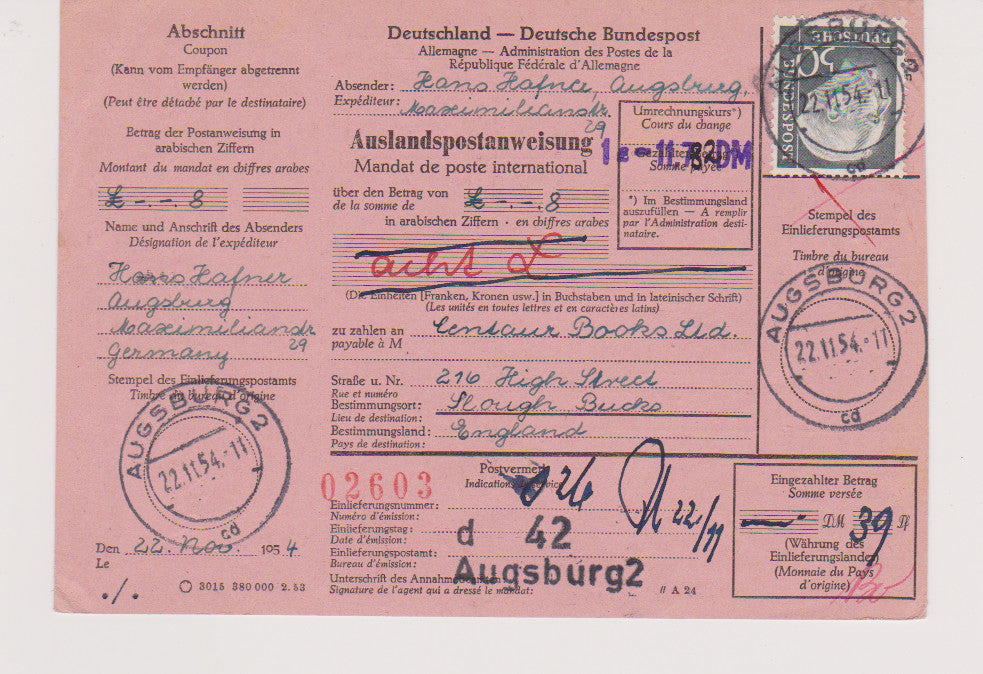 Abschnitt
Coupon
(Kann vom Empfänger abgetrennt
werden)
(Peut être détaché par le destinataire)
Betrag der Postanweisung in
arabischen Ziffern
Montant du mandat en chiffres arabes
£ -.-.8
Name und Anschrift des Absenders
Désignation de l'expéditeur
Hans Hafner
Augsburg
Maximilianstr.
29
Germany
Stempel des Einlieferungspostamts
Timbre du bureau d'origine
AUGSBURG 2
22.11.54.-11
cd
Den 22. Nov. 1954
Le
./.
3015 380 000 2.53
Deutschland — Deutsche Bundespost
Allemagne — Administration des Postes de la
République Fédérale d'Allemagne
Absender: Hans Hafner, Augsburg,
Expéditeur: Maximilianstr.
29
Auslandspostanweisung
Mandat de poste international
Umrechnungskurs*)
Cours du change
Gezahlter Betrag
Somme payée
DM
*) Im Bestimmungsland
auszufüllen — A remplir
par l'Administration desti-
nataire.
über den Betrag von
de la somme de
£ -.-.8
in arabischen Ziffern - en chiffres arabes
acht £
(Die Einheiten [Franken, Kronen usw.] in Buchstaben und in lateinischer Schrift)
(Les unités en toutes lettres et en caractères latins)
zu zahlen an Centaur Books Ltd.
payable à M
Straße u. Nr. 216 High Street
Rue et numéro
Bestimmungsort: Slough Bucks
Lieu de destination:
Bestimmungsland: England
Pays de destination:
Postvermerk
Indications de service
02603
26
22./11
Einlieferungsnummer:
Numéro d'émission:
Einlieferungstag:
Date d'émission:
d 42
Einlieferungspostamt:
Bureau d'émission:
Augsburg2
Unterschrift des Annahmebeamten
Signature de l'agent qui a dressé le mandat:
A 24
DEUTSCHE
BUNDESPOST
AUGSBURG 2
22.11.54.-11
cd
Stempel des
Einlieferungspostamts
Timbre du bureau
d'origine
AUGSBURG 2
22.11.54.-11
cd
Eingezahlter Betrag
Somme versée
DM 39 Pf
(Währung des
Einlieferungslandes)
(Monnaie du Pays
d'origine)